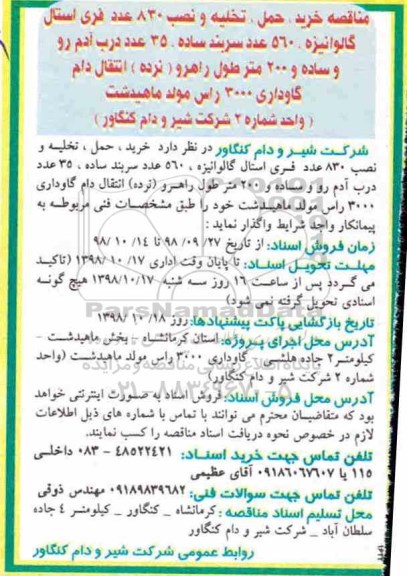 مناقصه خرید ، حمل ، تخلیه و نصب ۸۳۰ عدد فری استال
گالوانیزه ، ۵۶۰ عدد سربند ساده ـ ۳۵ عدد درب آدم رو
و ساده و ۲۰۰ متر طول راهرو ( نرده ) انتقال دام
گاوداری ۳۰۰۰ راس مولد ماهیدشت
( واحد شماره ۲ شرکت شیر و دام کنگاور )
شرکت شیر و دام کنگاور در نظر دارد خرید ، حمل ، تخلیه و
نصب ۸۳۰ عدد فری استال گالوانیزه ، ۵۶۰ عدد سربند ساده ، ۳۵ عدد
درب آدم رو و ساده و ۲۰۰ متر طول راهرو (نرده) انتقال دام گاوداری
۳۰۰۰ راس مولد ماهیدشت خود را طبق مشخصات فنی مربوطه به
پیمانکار واجد شرایط واگذار نماید :
زمان فروش اسناد: از تاریخ ۲۷ /۰۹ /۹۸ تا ۱۴ /۱۰ /۹۸
مهلت تحویل اسناد: تا پایان وقت اداری ۱۷/ ۱۰ /۱۳۹۸ (تاکید
می گردد پس از ساعت ۱۶ روز سه شنبه ۱۳۹۸/۱۰/۱۷ هیچ گونه
اسنادی تحویل گرفته نمی شود)
تاریخ بازگشایی پاکت پیشنهادها: روز ۱۸/ ۱۰ /۱۳۹۸
آدرس محل اجرای پروژه: استان کرمانشاه ـ بخش ماهیدشت ـ
کیلومتر ۲ جاده هلشی ـ گاوداری ۳۰۰۰ راس مولد ماهیدشت (واحد
شماره ۲ شرکت شیر و دام کنگاور)
آدرس محل فروش اسناد: فروش اسناد به صورت اینترنتی خواهد
بود که متقاضیان محترم می توانند با تماس با شماره های ذیل اطلاعات
لازم در خصوص نحوه دریافت اسناد مناقصه را کسب نمایند.
تلفن تماس جهت خرید اسناد: ۴۸۵۲۲۴۲۱ - ۰۸۳ داخلی
۱۱۵ یا ۰۹۱۸۶۰۶۷۶۰۷ آقای عظیمی
تلفن تماس جهت سوالات فنی: ۰۹۱۸۹۸۳۹۶۸۲ مهندس ذوقی
محل تسلیم اسناد مناقصه : کرمانشاه _ کنگاور _ کیلومتر ۴ جاده
سلطان آباد _ شرکت شیر و دام کنگاور
روابط عمومی شرکت شیر و دام کنگاور
ParsNamadData